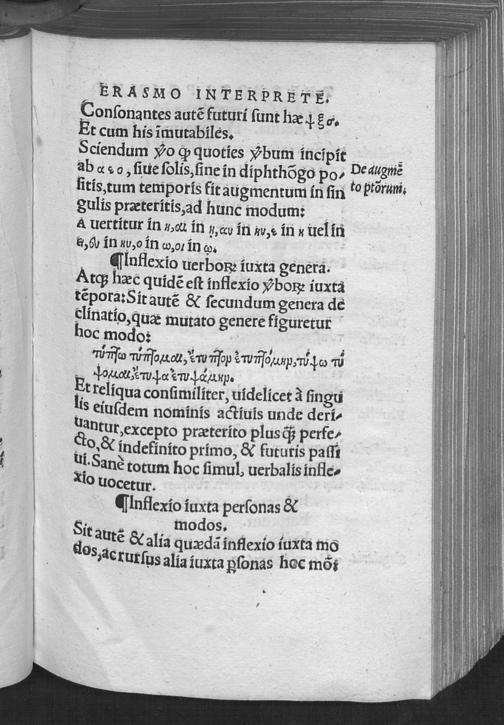 ERASMO INTERPRETE.
Consonantes autē futuri sunt hæ ψ ξ σ.
Et cum his īmutabiles.
Sciendum ꝟo ꝙ quoties ꝟbum incipit
ab α ε ο, siue solis, siue in diphthōgo po-
sitis, tum temporis fit augmentum in sin
gulis præteritis, ad hunc modum:
De augmē
to ptōrum.
A uertitur in η, αι in ῃ, αυ in ηυ, ε in η uel in
ει, ευ in ηυ, ο in ω, οι in ῳ.
¶Inflexio uerboꝝ iuxta genera.
Atqꝫ hæc quidē est inflexio ꝟboꝝ iuxta
tēpora: Sit autē & secundum genera de
clinatio, quæ mutato genere figuretur
hoc modo:
τύπτω τύπτομαι, ἔτυπτον ἐτυπτόμην, τύψω τύ
ψομαι, ἔτυψα ἐτυψάμην.
Et reliqua consimiliter, uidelicet à singu
lis eiusdem nominis actiuis unde deri-
uantur, excepto præterito plus qꝫ̄ perfe-
cto, & indefinito primo, & futuris passi
ui. Sanè totum hoc simul, uerbalis infle-
xio uocetur.
¶Inflexio iuxta personas &
modos.
Sit autē & alia quædā inflexio iuxta mo
dos, ac rursus alia iuxta ꝑsonas hoc mō: